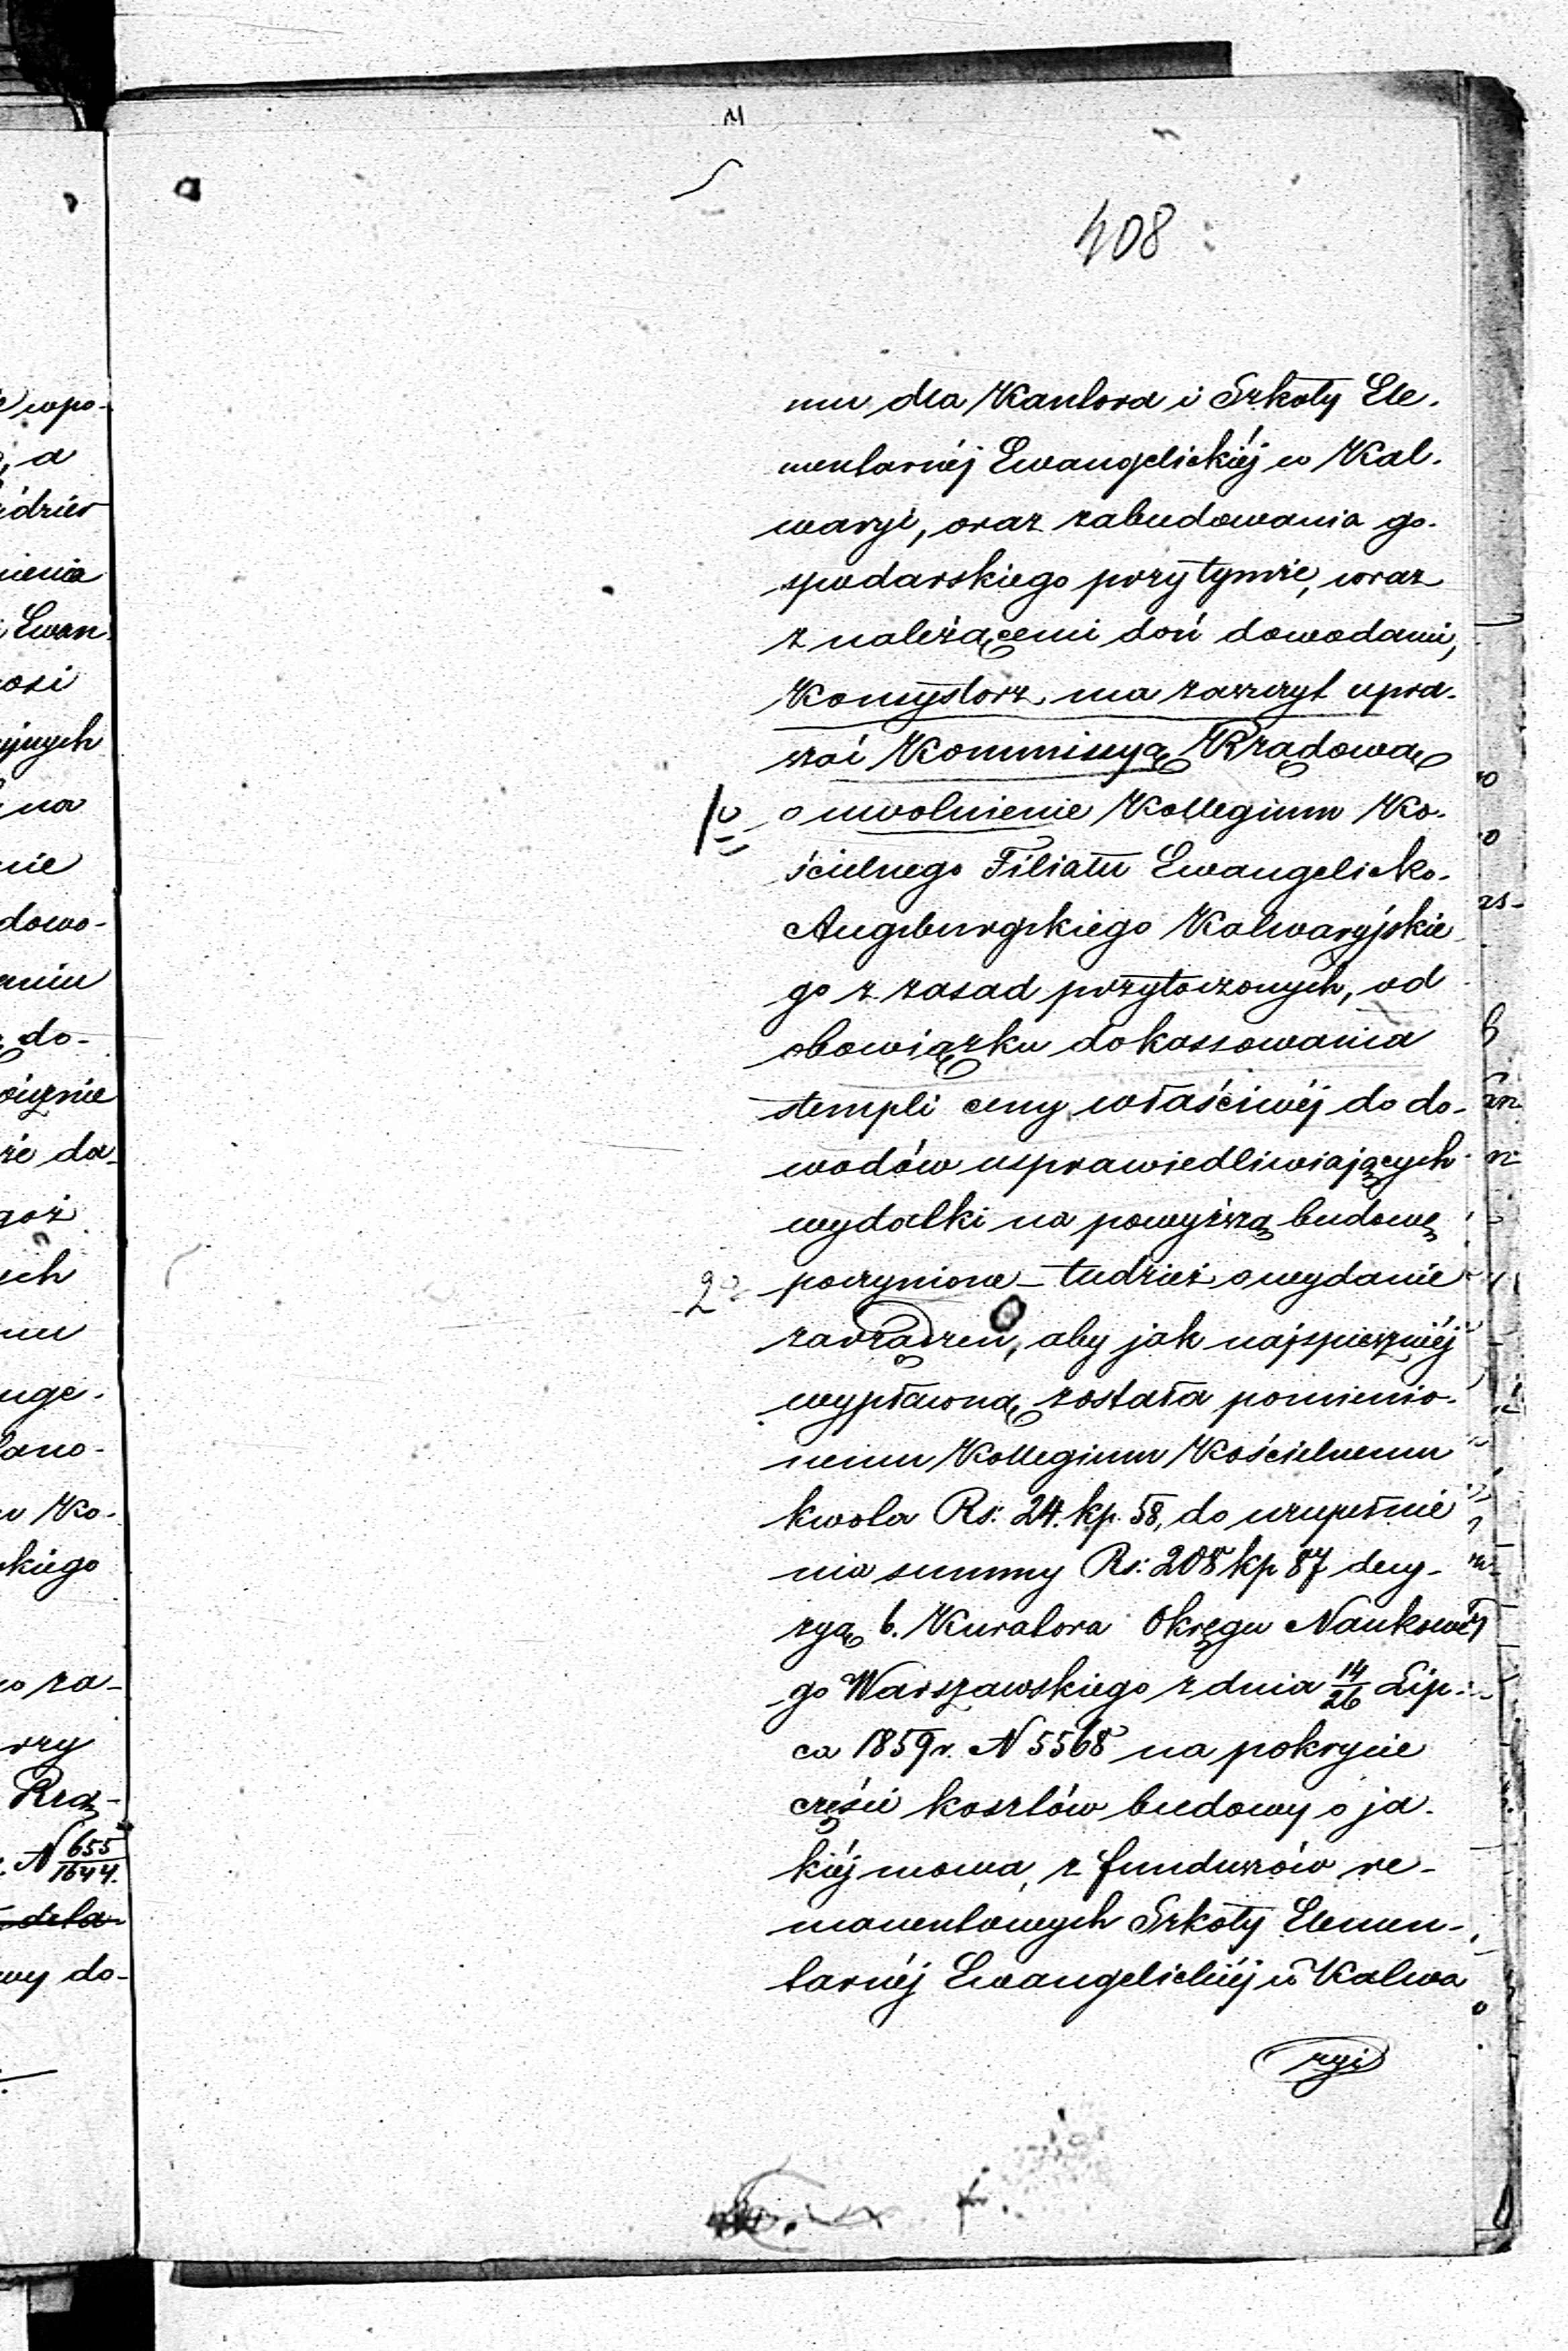 408
mu dla Kantora i Szkoły Ele-
mentarnéj Ewangelickiéj w Kal-
waryi, oraz zabudowania go-
spodarskiego przy tymże, wraz
z należącemi doń dowodami,
Konsystorz ma zaszczyt upra-
szać Kommissyą Rządową
1o o uwolnienie Kollegium Ko-
ścielnego Filiału Ewangelicko-
Augsburgskiego Kalwaryjskie
go z zasad przytoczonych, od
obowiązku dokassowania
stempli ceny właściwéj do do-
wodów usprawiedliwiających
wydatki na powyższą budowę
2o poczynione – tudzież o wydanie
zarządzeń, aby jak najspieszniéj
wypłaconą została pomienio-
nemu Kollegium Kościelnemu
kwota Rs: 24. kp. 58, do uzupełnie
nia summy Rs: 208 kp 87 decy-
zyą b. Kuratora Okręgu Naukowe
go Warszawskiego z dnia 14/26 Lip-
ca 1859 r. N 5568 na pokrycie
części kosztów budowy o ja-
kiéj mowa, z funduszów re-
manentowych Szkoły Elemen-
tarnéj Ewangelickiéj w Kalwa
ryi
wpo-
a
Ewan
na
nie
dowo-
do-
że da-
ych
Ko-
skiego
za-
Rzą-
N 655/1644.
do-